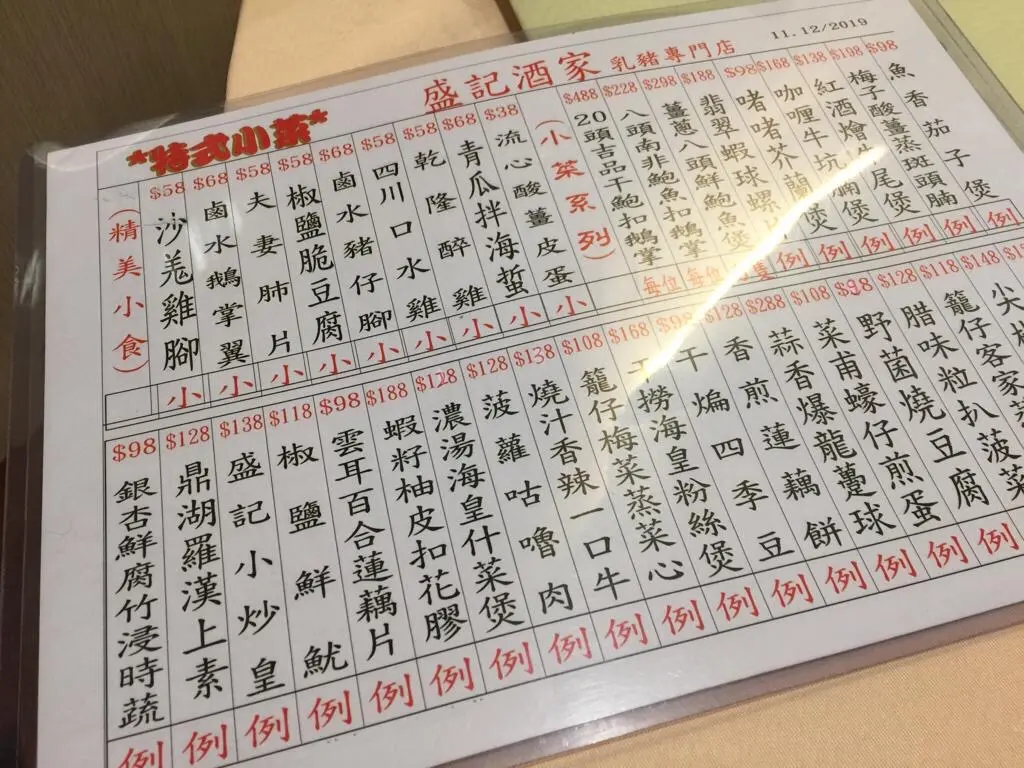 11.12/2019
盛記酒家 乳豬專門店
*特式小菜*
(精美小食)
$58 沙羗雞腳 小
$68 鹵水鵝掌翼 小
$58 夫妻肺片 小
$58 椒鹽脆豆腐 小
$68 鹵水豬仔腳 小
$58 四川口水雞 小
$58 乾隆醉雞 小
$68 青瓜拌海蜇 小
$38 流心酸薑皮蛋 小
(小菜系列)
$488 20頭吉品干鮑扣鵝掌 每位
$228 八頭南非鮑魚扣鵝掌 每位
$298 薑蔥八頭鮮鮑魚煲
$188 翡翠蝦球螺
$98 啫啫芥蘭煲 例
$168 咖喱牛坑腩煲 例
$138 紅酒燴牛尾煲 例
$198 梅子酸薑蒸斑頭腩 例
$98 魚香茄子煲 例
$98 銀杏鮮腐竹浸時蔬 例
$128 鼎湖羅漢上素 例
$138 盛記小炒皇 例
$118 椒鹽鮮魷 例
$98 雲耳百合蓮藕片 例
$188 蝦籽柚皮扣花膠 例
$128 濃湯海皇什菜煲 例
$128 菠蘿咕嚕肉 例
$138 燒汁香辣一口牛 例
$108 籠仔梅菜蒸菜心 例
$168 干撈海皇粉絲煲 例
$98 干煸四季豆 例
$128 香煎蓮藕餅 例
$288 蒜香爆龍躉球 例
$108 菜甫蠔仔煎蛋 例
$98 野菌燒豆腐 例
$128 臘味粒扒菠菜 例
$118 籠仔客家
$148 尖椒